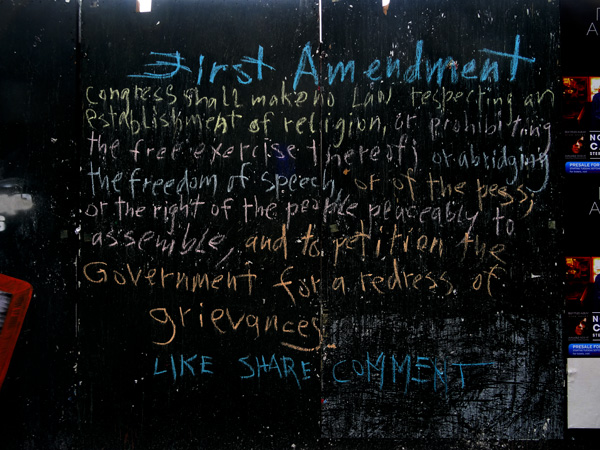 First Amendment
Congress shall make no Law respecting an
establishment of religion, or prohibiting
the free exercise thereof; or abridging
the freedom of speech, or of the pess;
or the right of the people peaceably to
assemble, and to petition the
Government for a redress of
grievances.
LIKE SHARE COMMENT
PRESALE FOR
PRESALE FOR